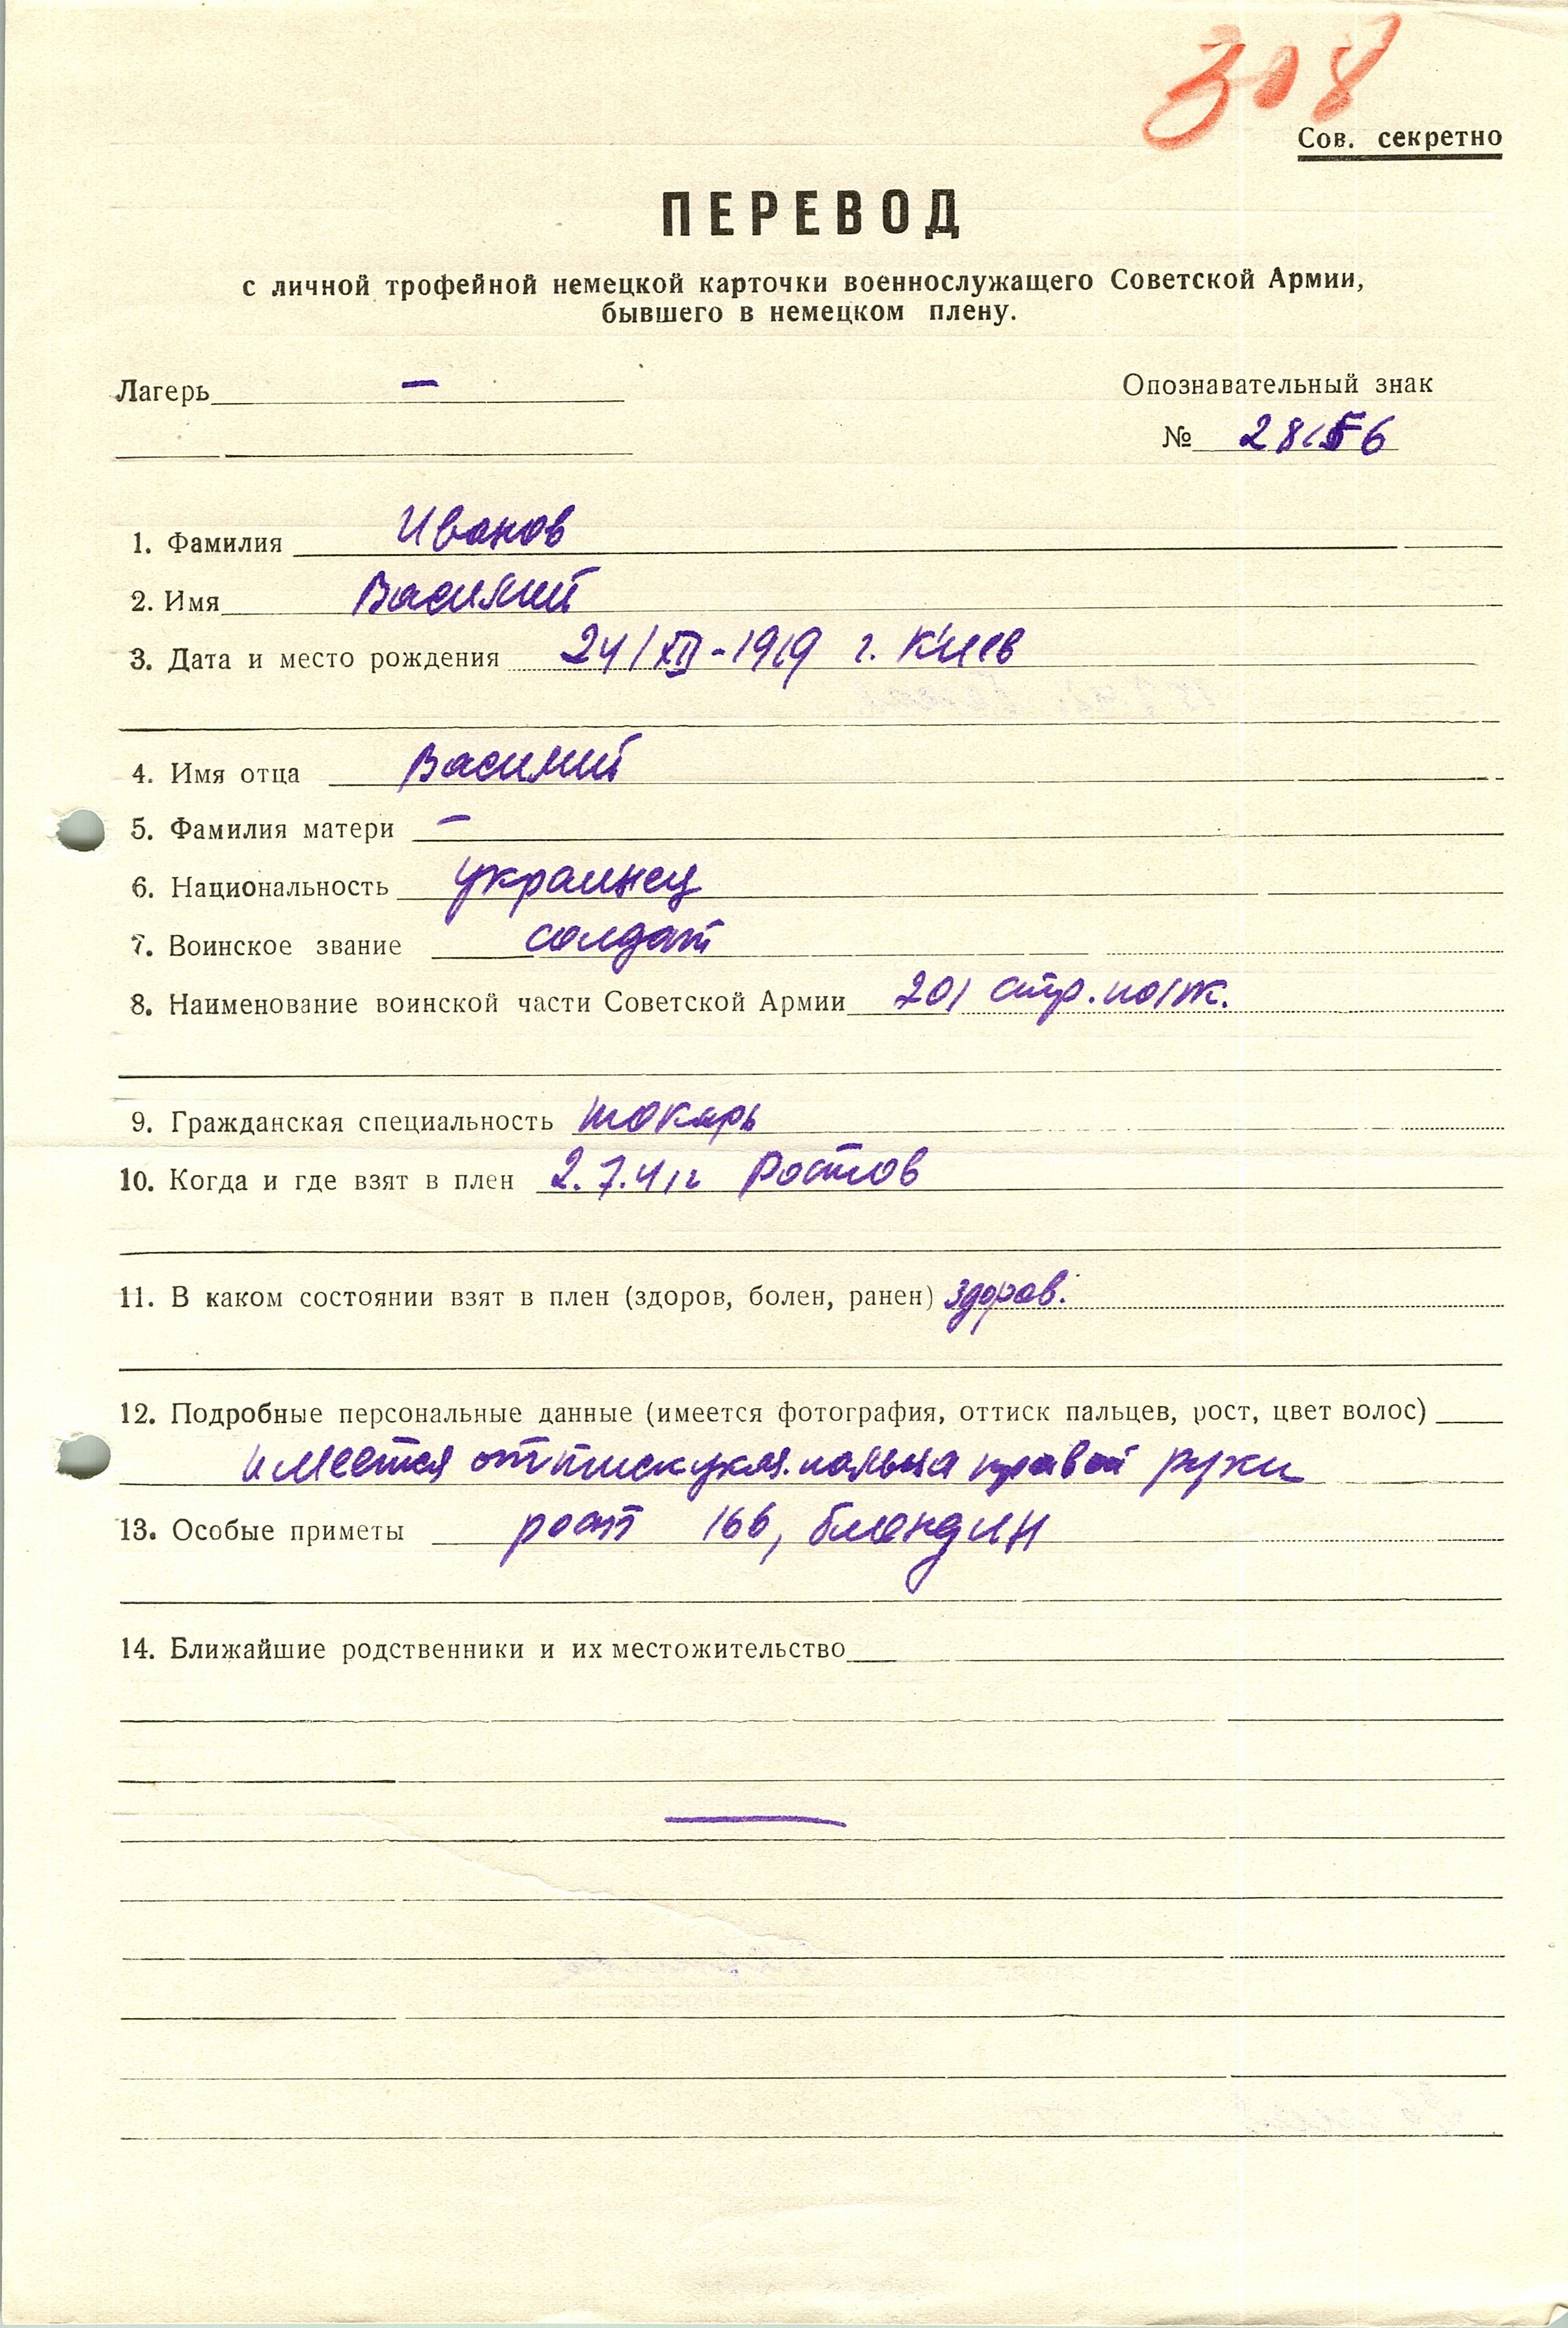 308
Сов. секретно
ПЕРЕВОД
с личной трофейной немецкой карточки военнослужащего Советской Армии,
бывшего в немецком плену.
Лагерь —
Опознавательный знак
№
1. Фамилия Иванов
2. Имя Василий
3. Дата и место рождения 24/XII-1919 г. Киев
4. Имя отца Василий
5. Фамилия матери —
6. Национальность украинец
7. Воинское звание солдат
8. Наименование воинской части Советской Армии 201 стр. полк.
9. Гражданская специальность токарь
10. Когда и где взят в плен 2.7.41г Ростов
11. В каком состоянии взят в плен (здоров, болен, ранен) здоров.
12. Подробные персональные данные (имеется фотография, оттиск пальцев, рост, цвет волос)
имеется оттиск указ. пальца правой руки
13. Особые приметы рост 166, блондин
14. Ближайшие родственники и их местожительство
—